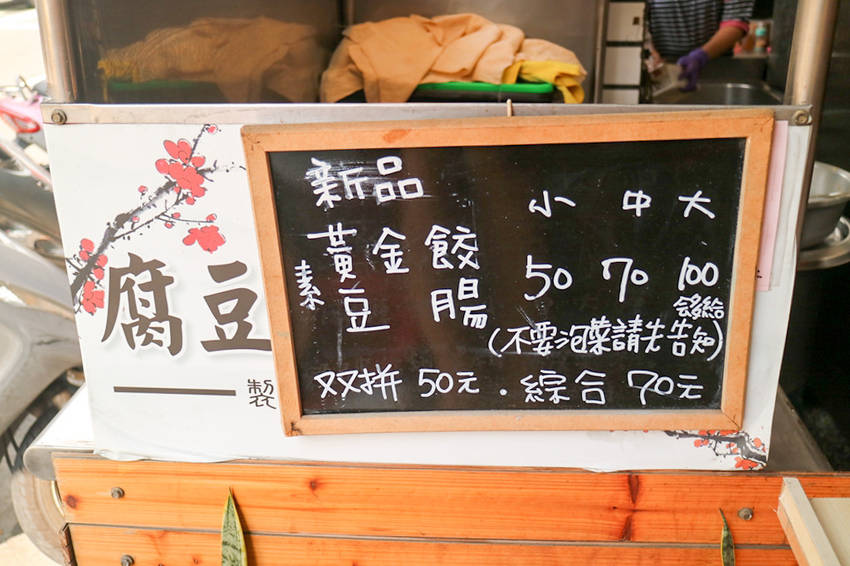 新品 小 中 大
素 黃金餃 50 70 100
豆腸 會多給
(不要泡菜請先告知)
双拼 50元 . 綜合 70元
腐豆
製